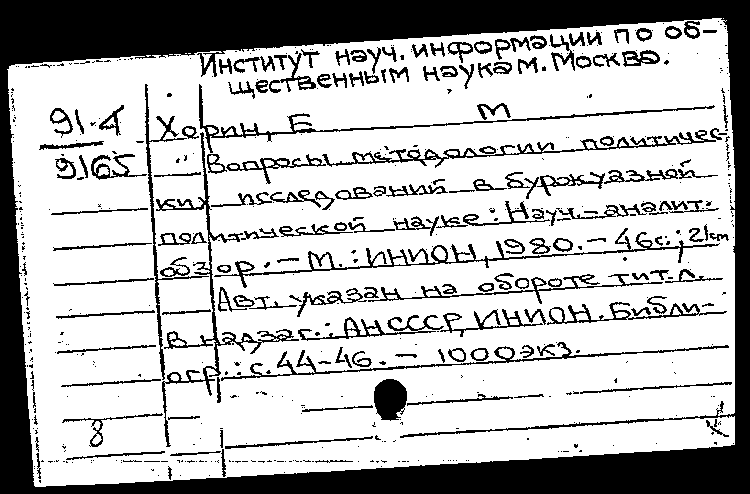 Институт науч. информации по об-
щественным наукам. Москва.
91-4
9165
Хорин, Б М
" Вопросы методологии политичес-
ких исследований в буржуазной
политической науке: Науч.-аналит.
обзор. - М.: ИНИОН, 1980. - 46с.; 21cm
Авт. указан на обороте тит. л.
В надзаг.: АН СССР, ИНИОН. Библи-
огр.: с. 44-46. - 1000экз.
8
X